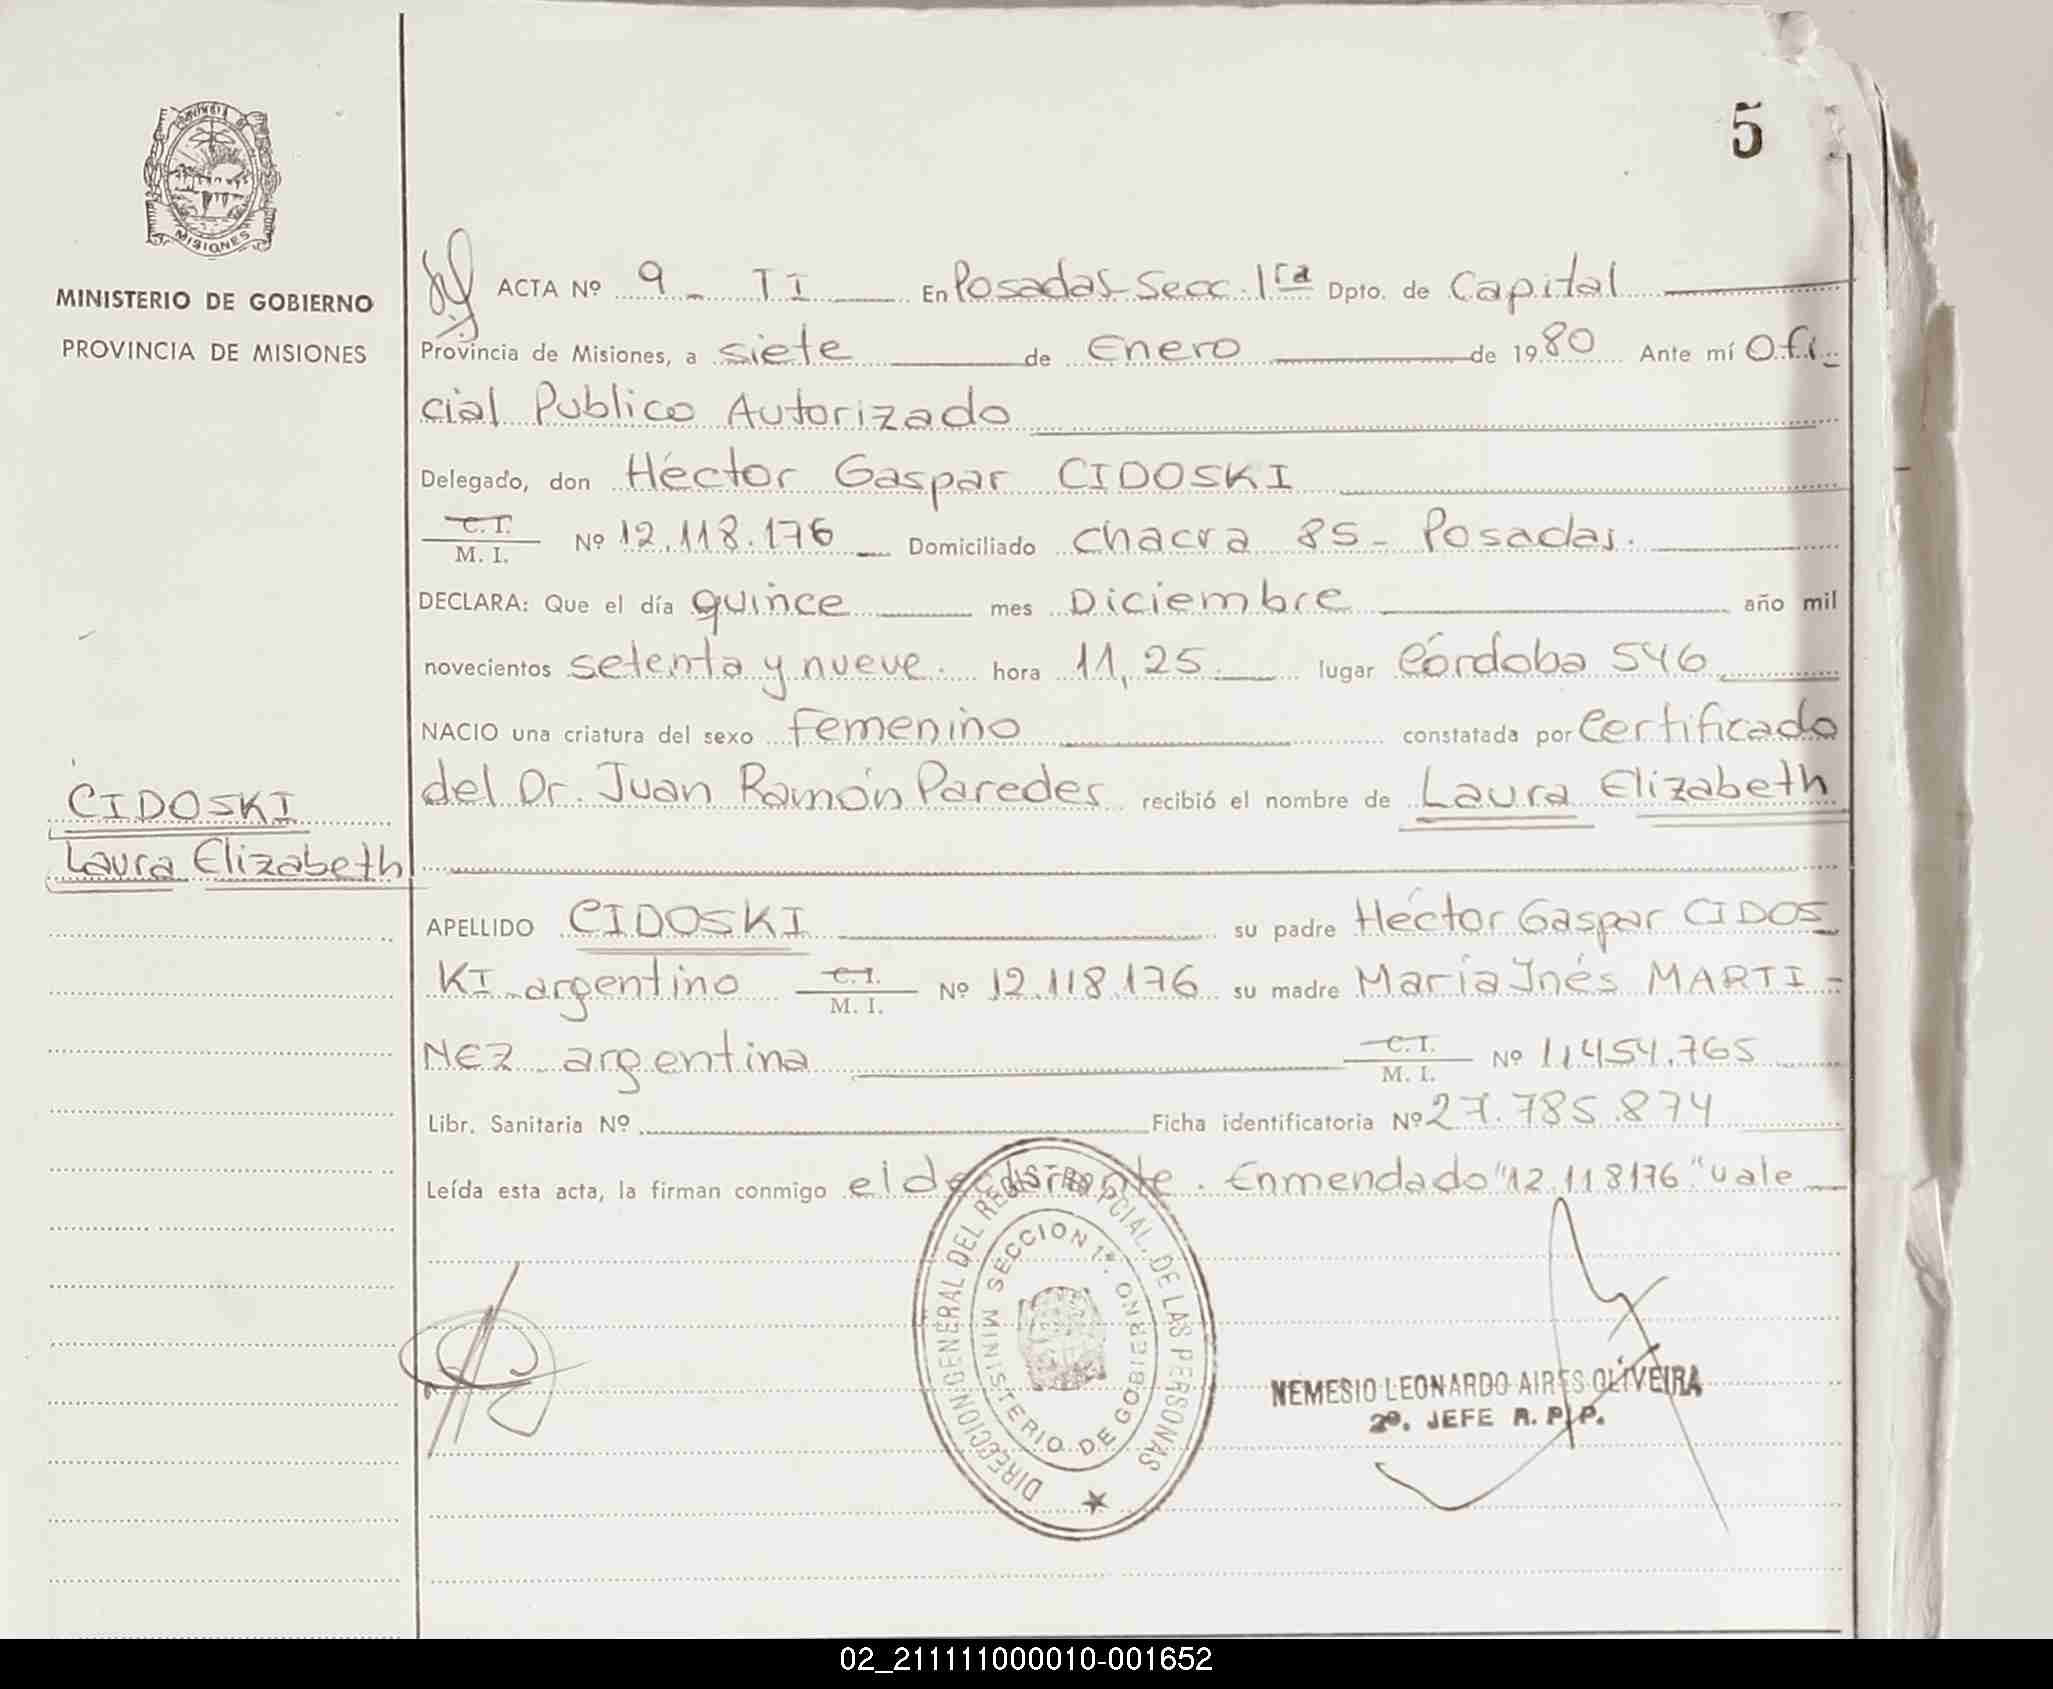 5
MISIONES
MINISTERIO DE GOBIERNO
PROVINCIA DE MISIONES
ACTA Nº 9 - TI En Posadas Secc. 1ra Dpto. de Capital
Provincia de Misiones, a siete de Enero de 1980 Ante mí Ofi-
cial Publico Autorizado
Delegado, don Héctor Gaspar CIDOSKI
C.I. M. I. Nº 12.118.176 Domiciliado Chacra 85 - Posadas.
DECLARA: Que el día quince mes Diciembre año mil
novecientos setenta y nueve. hora 11,25 lugar Córdoba 546
NACIO una criatura del sexo femenino constatada por Certificado
del Dr. Juan Ramón Paredes recibió el nombre de Laura Elizabeth
CIDOSKI
Laura Elizabeth
APELLIDO CIDOSKI su padre Héctor Gaspar CIDOS
KI argentino C.I. M. I. Nº 12.118.176 su madre María Inés MARTI-
NEZ argentina C.I. M. I. Nº 11.454.765
Libr. Sanitaria Nº Ficha identificatoria Nº 27.785.874
Leída esta acta, la firman conmigo el declarante. Enmendado "12.118176." vale
DIRECCION GENERAL DEL REGISTRO PCIAL. DE LAS PERSONAS
SECCION 1ª.
MINISTERIO DE GOBIERNO
NEMESIO LEONARDO AIRES OLIVEIRA
2º. JEFE R. P. P.
02_211111000010-001652